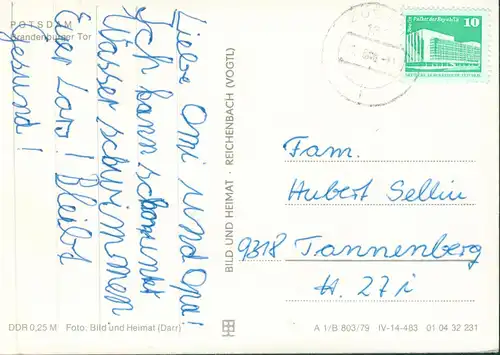 POTSDAM
Brandenburger Tor
Liebe Omi und Opa!
Ich kann schon unter
Wasser schwimmen
Euer Lars! Bleibt
gesund!
DDR 0,25 M Foto: Bild und Heimat (Darr)
BILD UND HEIMAT · REICHENBACH (VOGTL)
10
Fam.
Hubert Sellin
9318 Tannenberg
H. 27i
A 1/B 803/79 IV-14-483 01 04 32 231